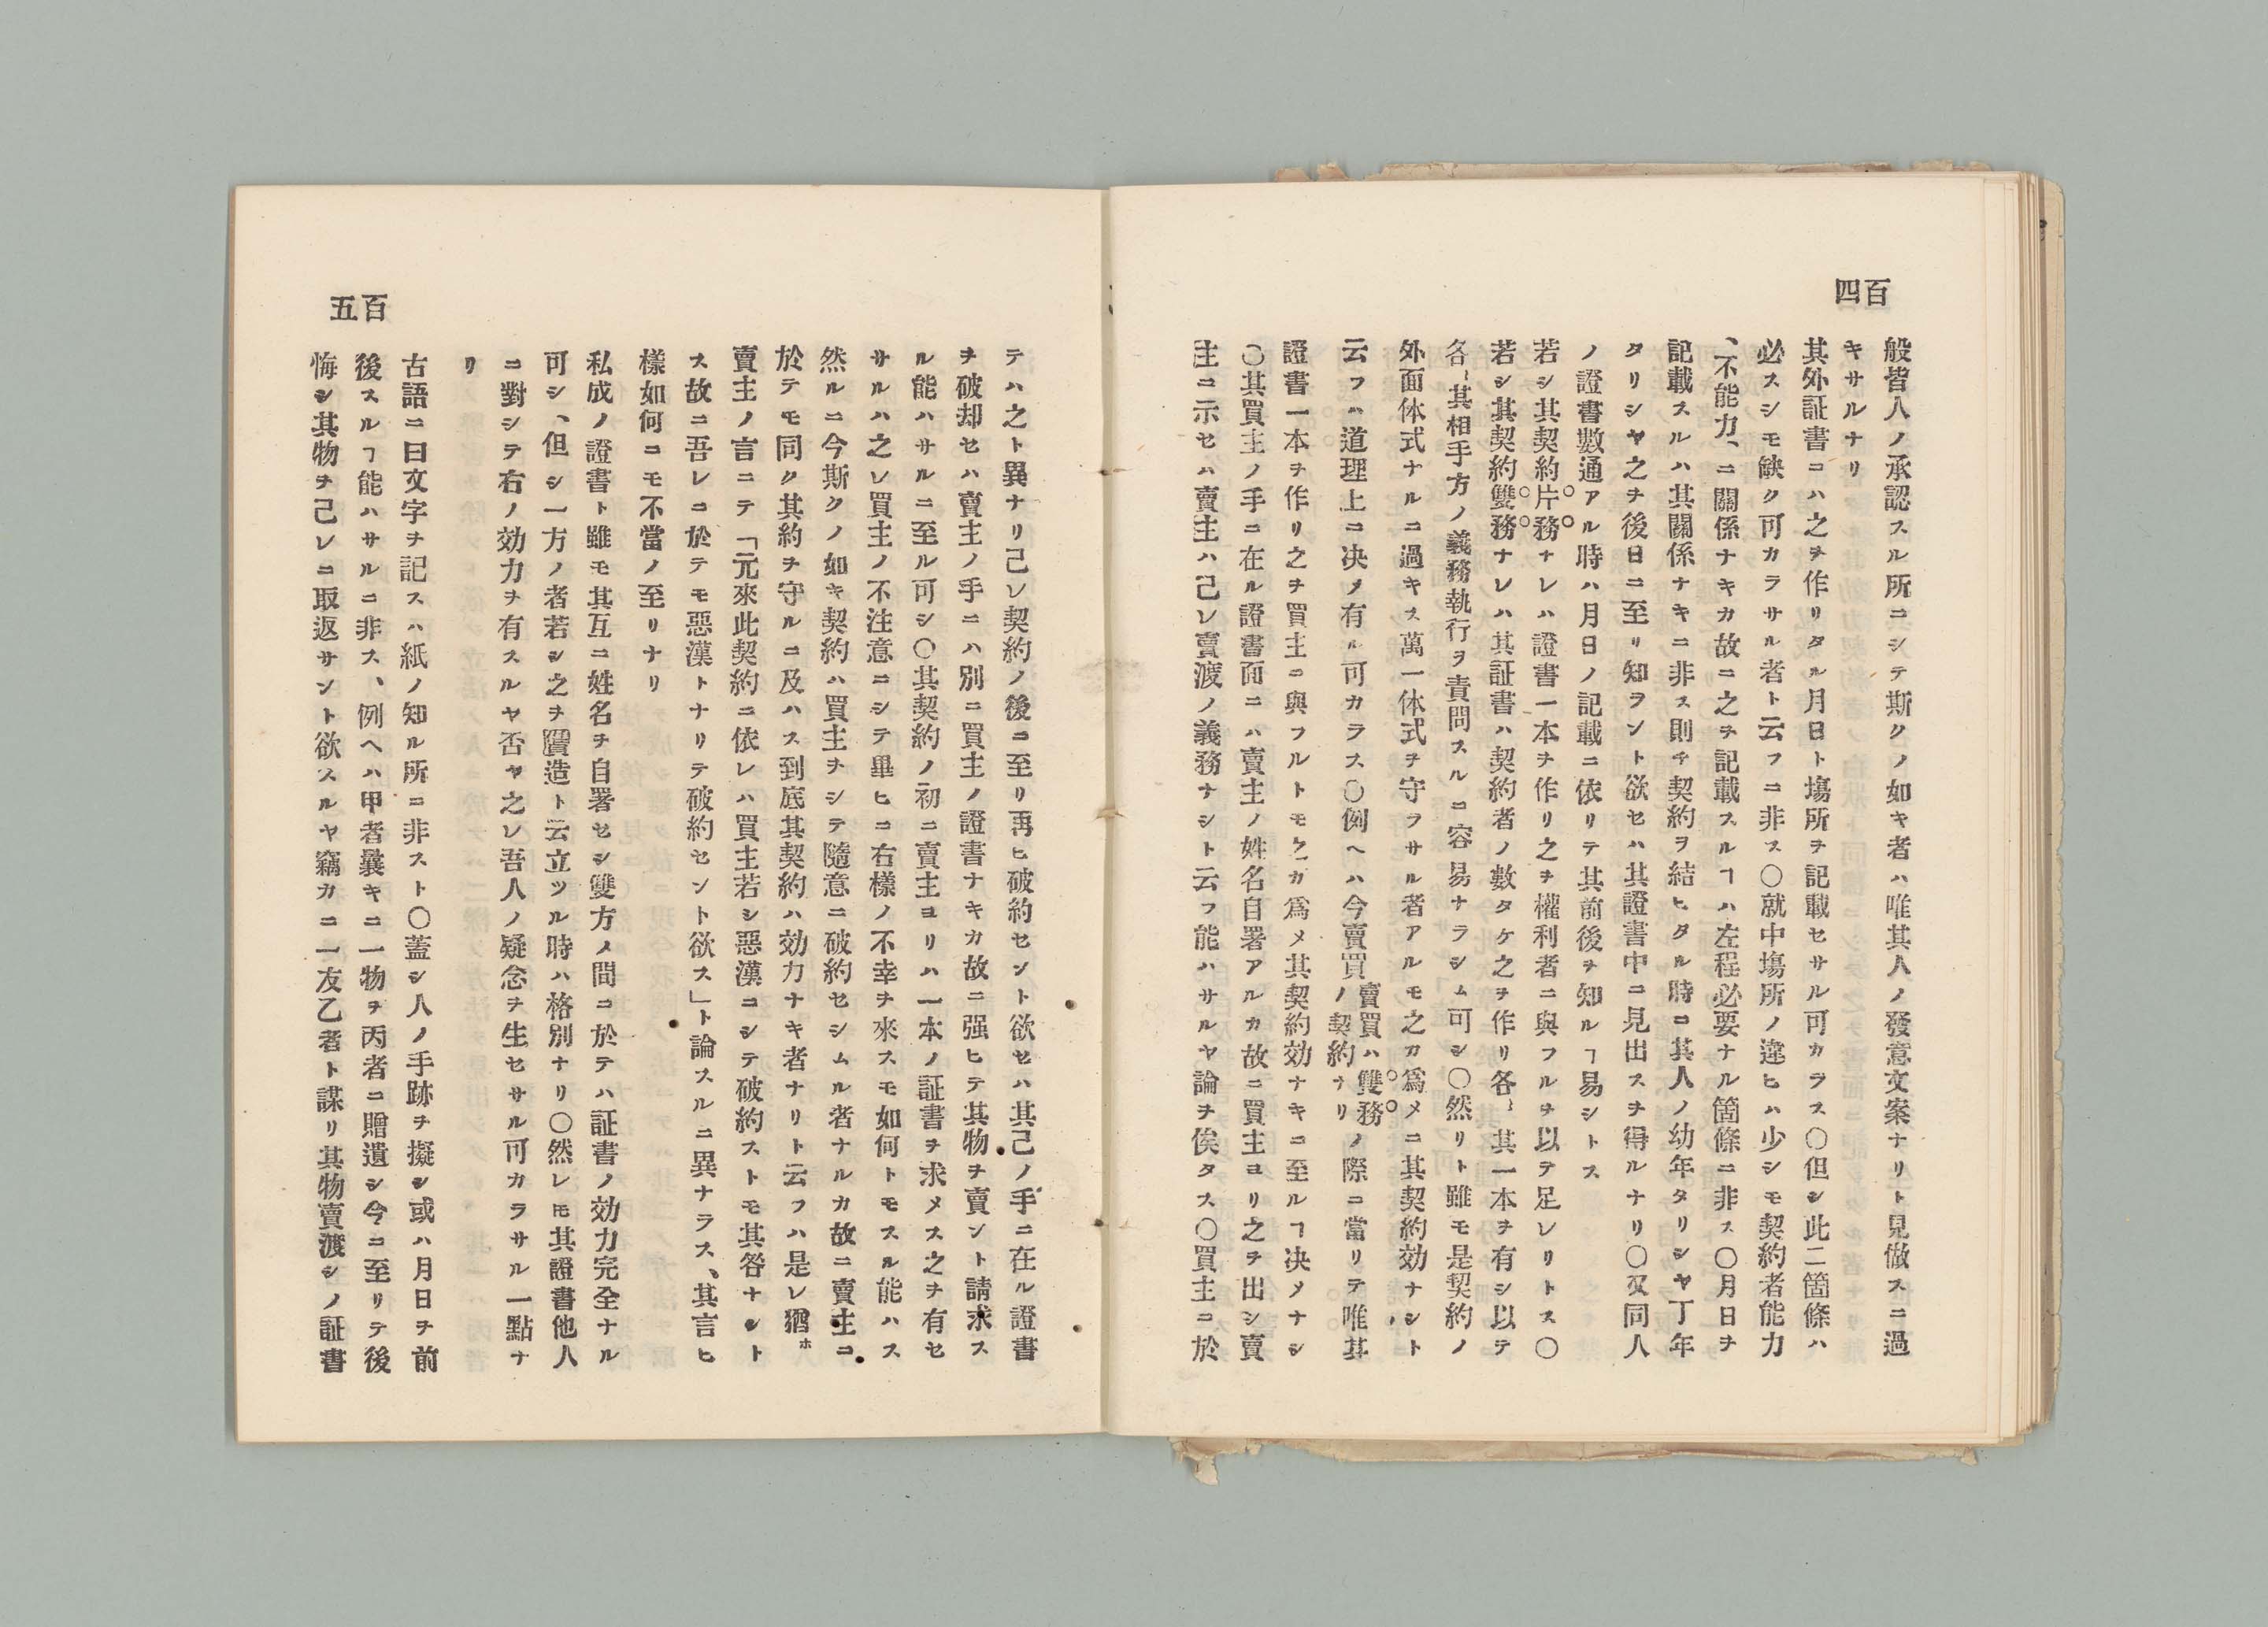 百四
般皆人ノ承認スル所ニシテ斯クノ如キ者ハ唯其人ノ發意文案ナリト見做スニ過
キサルナリ
其外証書ニハ之ヲ作リタル月日ト塲所ヲ記載セサル可カラス〇但シ此二箇條ハ
必スシモ缺ク可カラサル者ト云フニ非ス〇就中塲所ノ違ヒハ少シモ契約者能力
、不能力、ニ關係ナキカ故ニ之ヲ記載スルヿハ左程必要ナル箇條ニ非ス〇月日ヲ
記載スルハ其關係ナキニ非ス則チ契約ヲ結ヒタル時ニ其人ノ幼年タリシヤ丁年
タリシヤ之ヲ後日ニ至リ知ヲント欲セハ其證書中ニ見出スヲ得ルナリ〇又同人
ノ證書數通アル時ハ月日ノ記載ニ依リテ其前後ヲ知ルヿ易シトス
若シ其契約片務ナレハ證書一本ヲ作リ之ヲ權利者ニ與フルヲ以テ足レリトス〇
若シ其契約雙務ナレハ其証書ハ契約者ノ數タケ之ヲ作リ各〻其一本ヲ有シ以テ
各〻其相手方ノ義務執行ヲ責問スルニ容易ナラシム可シ〇然リト雖モ是契約ノ
外面体式ナルニ過キス萬一体式ヲ守フサル者アルモ之カ爲メニ其契約効ナシト
云フハ道理上ニ决メ有ル可カラス〇例ヘハ今賣買賣買ハ雙務ノ契約ナリノ際ニ當リテ唯其
證書一本ヲ作リ之ヲ買主ニ與フルトモ之カ爲メ其契約効ナキニ至ルヿ决メナシ
〇其買主ノ手ニ在ル證書面ニハ賣主ノ姓名自署アルカ故ニ買主ヨリ之ヲ出シ賣
主ニ示セハ賣主ハ己レ賣渡ノ義務ナシト云フ能ハサルヤ論ヲ俟タス〇買主ニ於
百五
テハ之ト異ナリ己レ契約ノ後ニ至リ再ヒ破約セント欲セハ其己ノ手ニ在ル證書
ヲ破却セハ賣主ノ手ニハ別ニ買主ノ證書ナキカ故ニ强ヒテ其物ヲ賣ント請求ス
ル能ハサルニ至ル可シ〇其契約ノ初ニ賣主ヨリハ一本ノ証書ヲ求メス之ヲ有セ
サルハ之レ買主ノ不注意ニシテ畢ヒニ右樣ノ不幸ヲ來スモ如何トモスル能ハス
然ルニ今斯クノ如キ契約ハ買主ヲシテ隨意ニ破約セシムル者ナルカ故ニ賣主ニ
於テモ同ク其約ヲ守ルニ及ハス到底其契約ハ効力ナキ者ナリト云フハ是レ猶ホ
賣主ノ言ニテ「元來此契約ニ依レハ買主若シ惡漢ニシテ破約ストモ其咎ナシト
ス故ニ吾レニ於テモ惡漢トナリテ破約セント欲ス」ト論スルニ異ナラス、其言ヒ
樣如何ニモ不當ノ至リナリ
私成ノ證書ト雖モ其互ニ姓名ヲ自署セシ雙方ノ間ニ於テハ証書ノ効力完全ナル
可シ、但シ一方ノ者若シ之ヲ贋造ト云立ツル時ハ格別ナリ〇然レ𪜈其證書他人
ニ對シテ右ノ効力ヲ有スルヤ否ヤ之レ吾人ノ疑念ヲ生セサル可カラサル一點ナ
リ
古語ニ曰文字ヲ記スハ紙ノ知ル所ニ非スト〇蓋シ人ノ手跡ヲ擬シ或ハ月日ヲ前
後スルヿ能ハサルニ非ス、例ヘハ甲者曩キニ一物ヲ丙者ニ贈遺シ今ニ至リテ後
悔シ其物ヲ己レニ取返サント欲スルヤ竊カニ一友乙者ト謀リ其物賣渡シノ証書